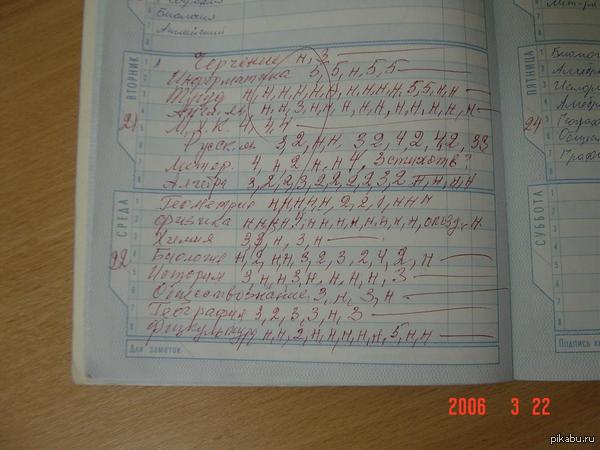 Биология
Английский
ВТОРНИК
21
Черчение н, 3
Информатика 5, 5, н, 5, 5
Труд н, н, н, н, н, н, н, н, н, 5, 5, н, н
М.Х.К. 4, 4, 4
Русск. яз 3, 2, н, н, 3 2, 4 2, 4 2, 3 3
Литер. 4, н, 2, н, н 4, 3 стихотв?
Алгебра 3, 2, 2, 3, 2, 2, 2, 2, 3, 2, н, н, н, н
СРЕДА
22
Геометрия н, н, н, н, н, 2, 2, 1, н, н, н
Физика н, н, н, н, н, н, н, н, н, н, опозд, н
Химия 3, 3, н, 3, н
Биология н, 2, н, н, 3, 2, 3, 2, 4, 2, н
История 3, н, н, 3, н, н, н, н, 3
Обществознание 3, н, 3, н
География 3, 2, 3, 3, н, 3
Физкультура н, н, 2, н, н, н, н, н, 5, н, н
Для заметок
ПЯТНИЦА
24
Биолог
Алгебр
Истори
Алгебр
Геогра
Общес
СУББОТА
Подпись кл
2006 3 22
pikabu.ru